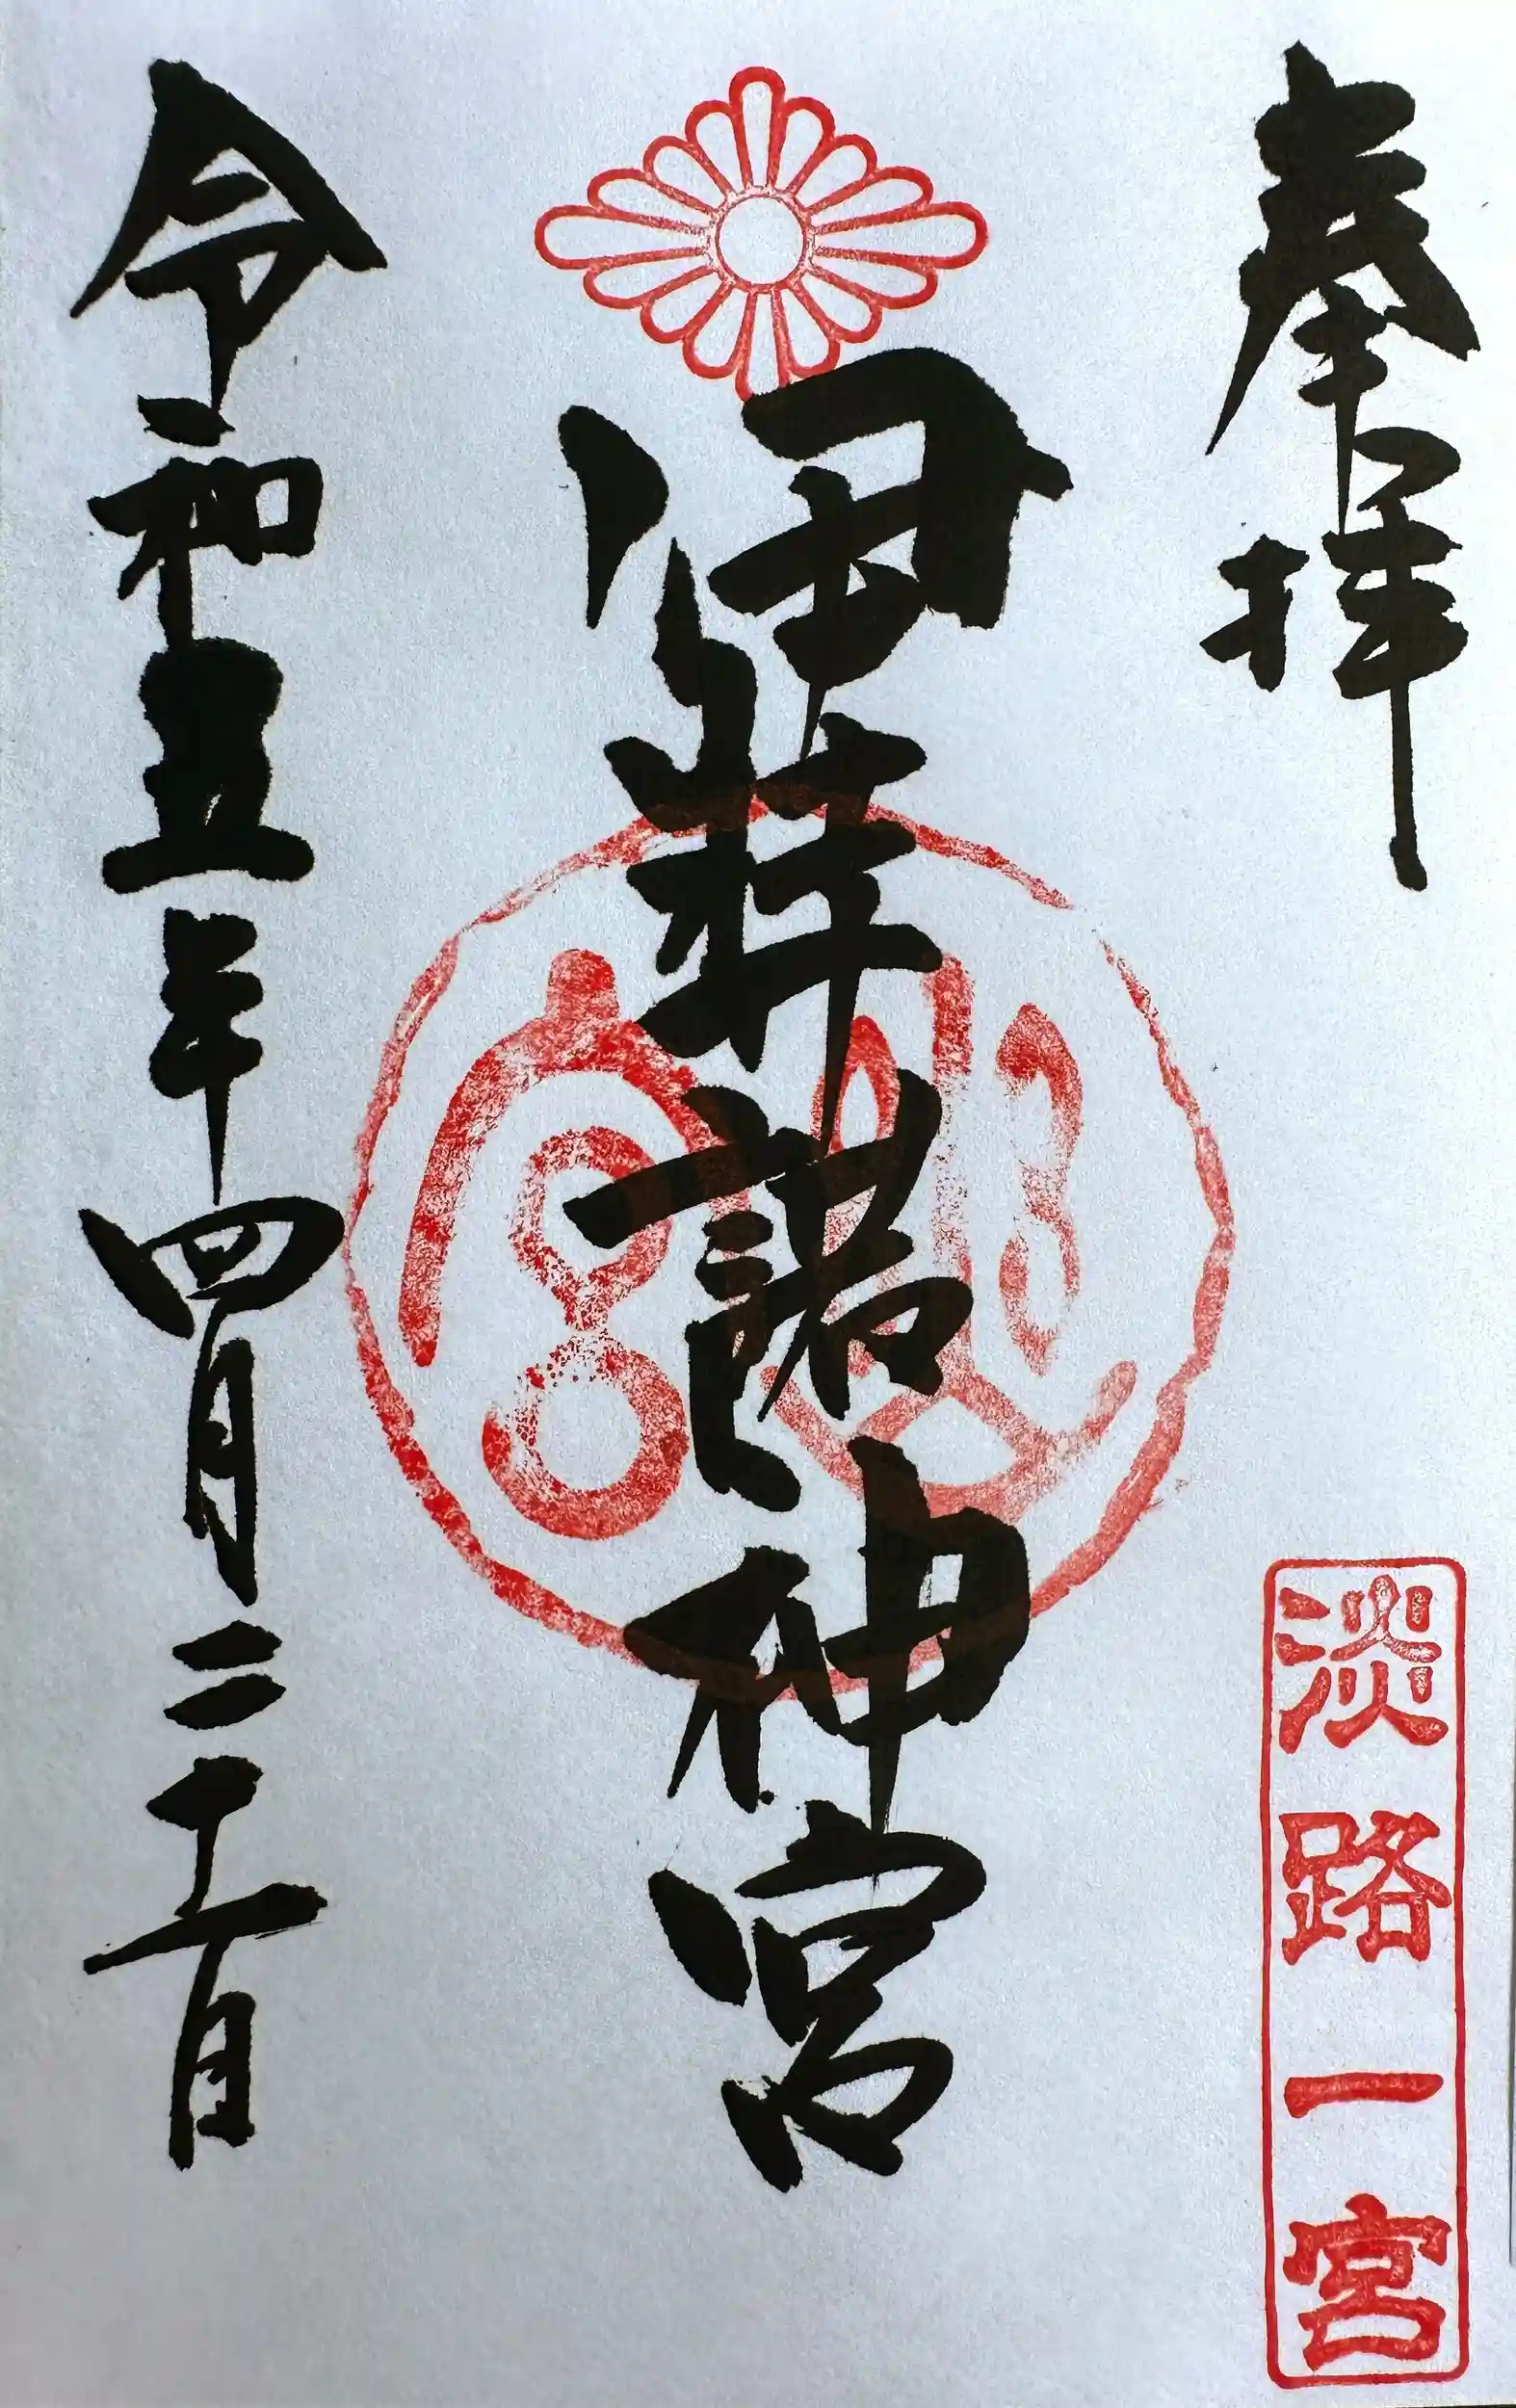 奉拝
淡路一宮
伊弉諾神宮
幽宮
令和五年四月二十一日